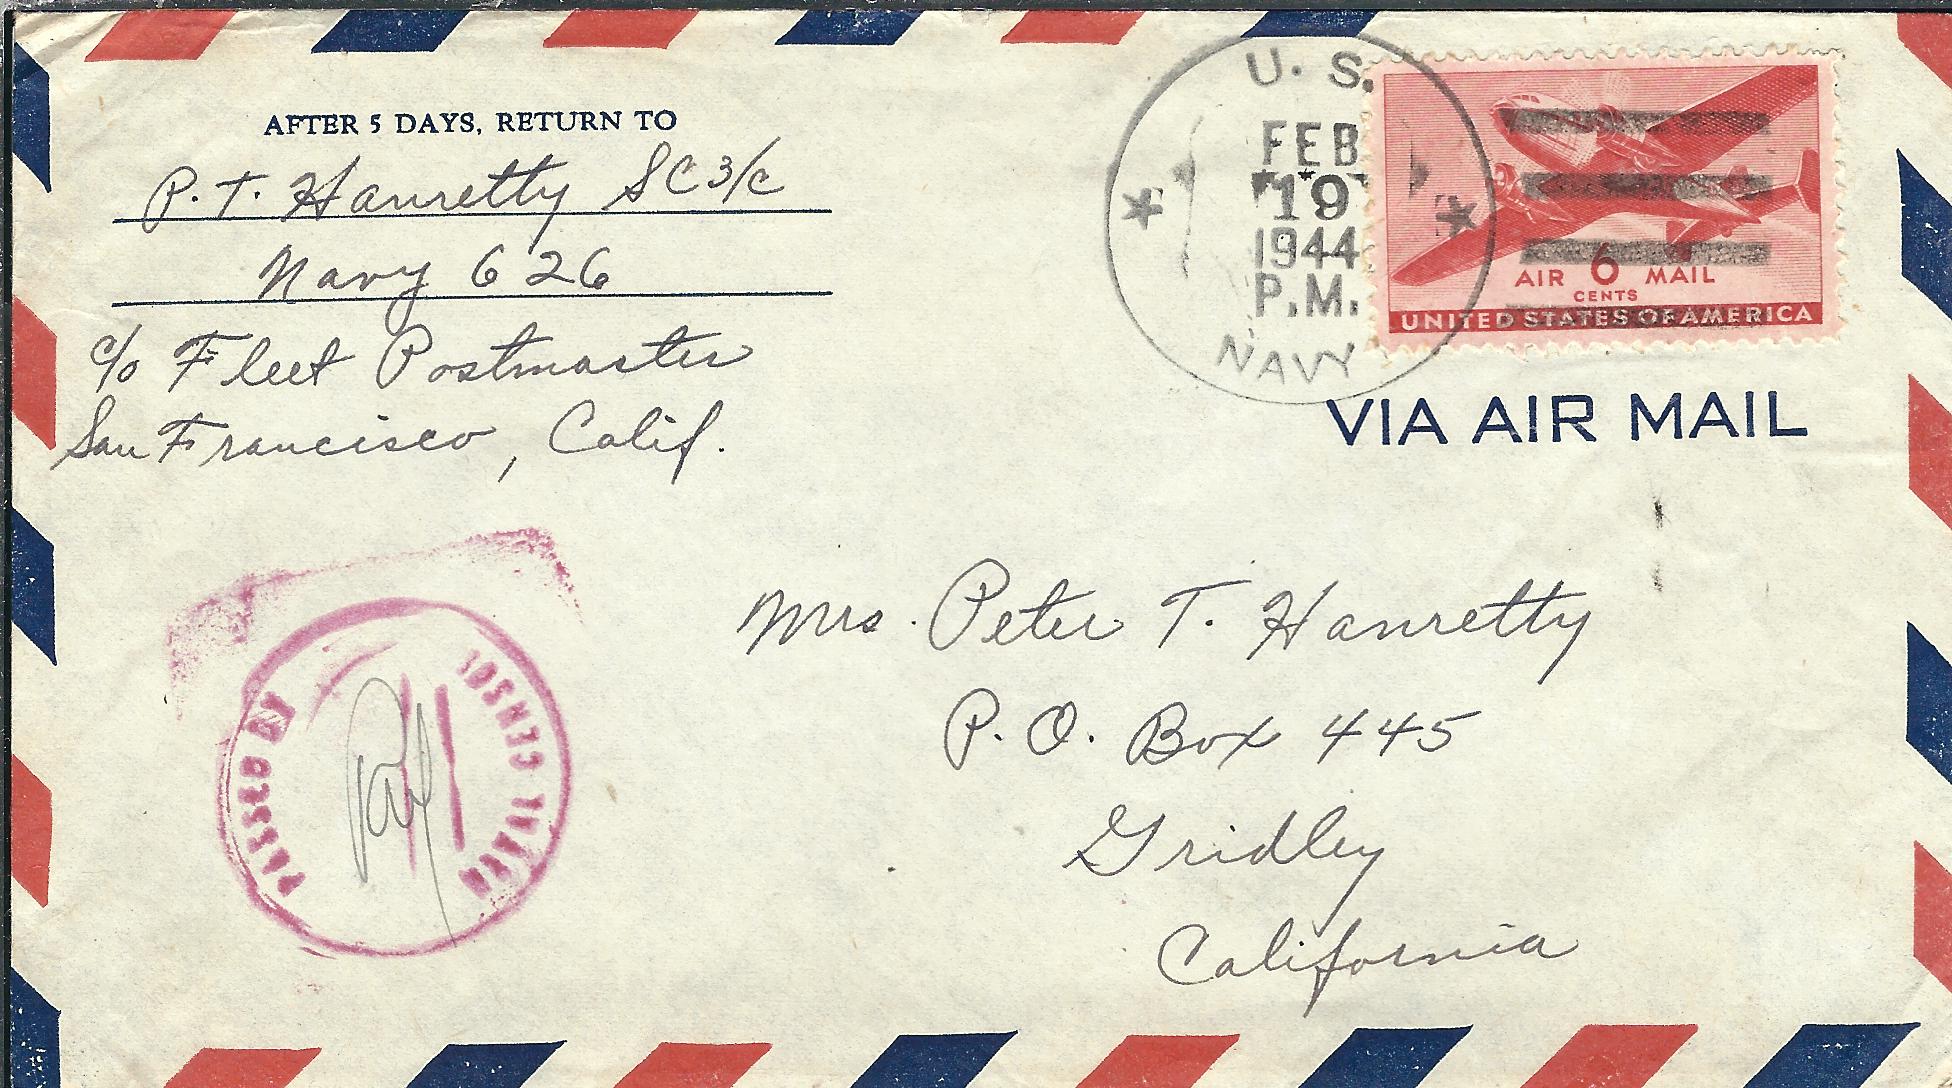 AFTER 5 DAYS, RETURN TO
P. T. Hanretty SC3/c
Navy 626
c/o Fleet Postmaster
San Francisco, Calif.
U. S.
FEB
19
1944
P.M.
NAVY
AIR 6 MAIL
CENTS
UNITED STATES OF AMERICA
VIA AIR MAIL
PASSED BY
NAVAL CENSOR
Mrs. Peter T. Hanretty
P. O. Box 445
Gridley
California